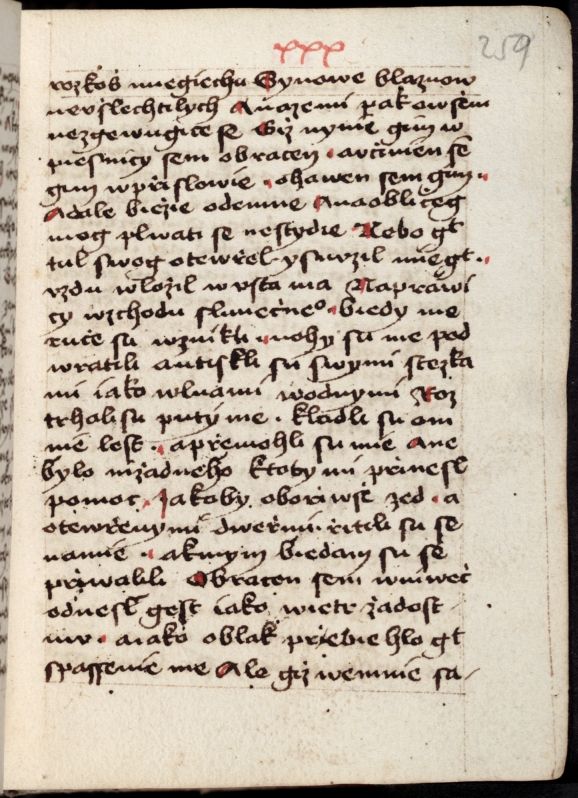 xxx
259
rozkoš miegiechu Synowe blaznow
nevšlechtilych A vazemi pakowsėm
nezgewugiceſe Giž nynie gim w
pieſnicy ſem obracen . avčinien ſē
gim wpřiſlowie . ohawen ſem gim .
Adale biežie odemne Anaobličeg
mog plwati ſe neſtydie Nebo gt
tul ſwog otewřel yſuzil mie gt .
vzdu wložil w vſta ma Naprawi
cy wzchodu ſlunečneo . biedy me
ruče ſu wznikli . nohy ſu me pod
wratili autiskli ſu ſwymi ſtezka
mi iako wlnami wodnymi Roz
trhali ſu puty me . kladli ſu om
nie leſt . apřemohli ſu mie Ane
bylo nižadneho ktoby mi přineſl
pomoc . Jakoby oboriwše zed . a
otewřenymi dweřmi řitili ſu ſe
namie . akmym biedam ſu ſe
přiwalili Obracen ſem wniweč
odneſl geſt iako wietr žadoſt
mu . aiako oblak přebiehlo gt
ſpaſſenie me Ale giž wemnie ſa-